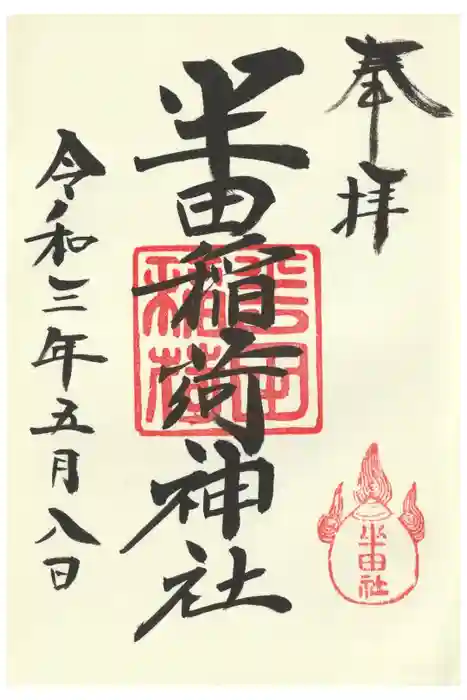 奉拝
半田稲荷神社
半田稲荷
半田社
令和三年五月八日